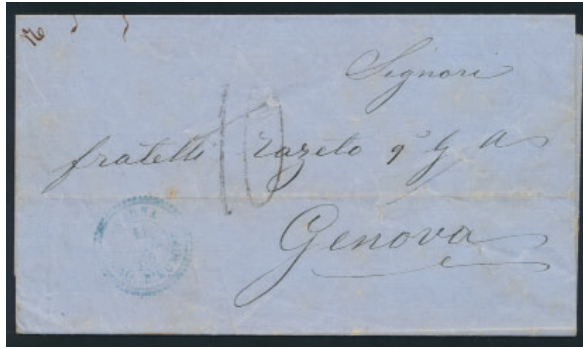 Signori
10
fratelli Razeto q° G A
Genova